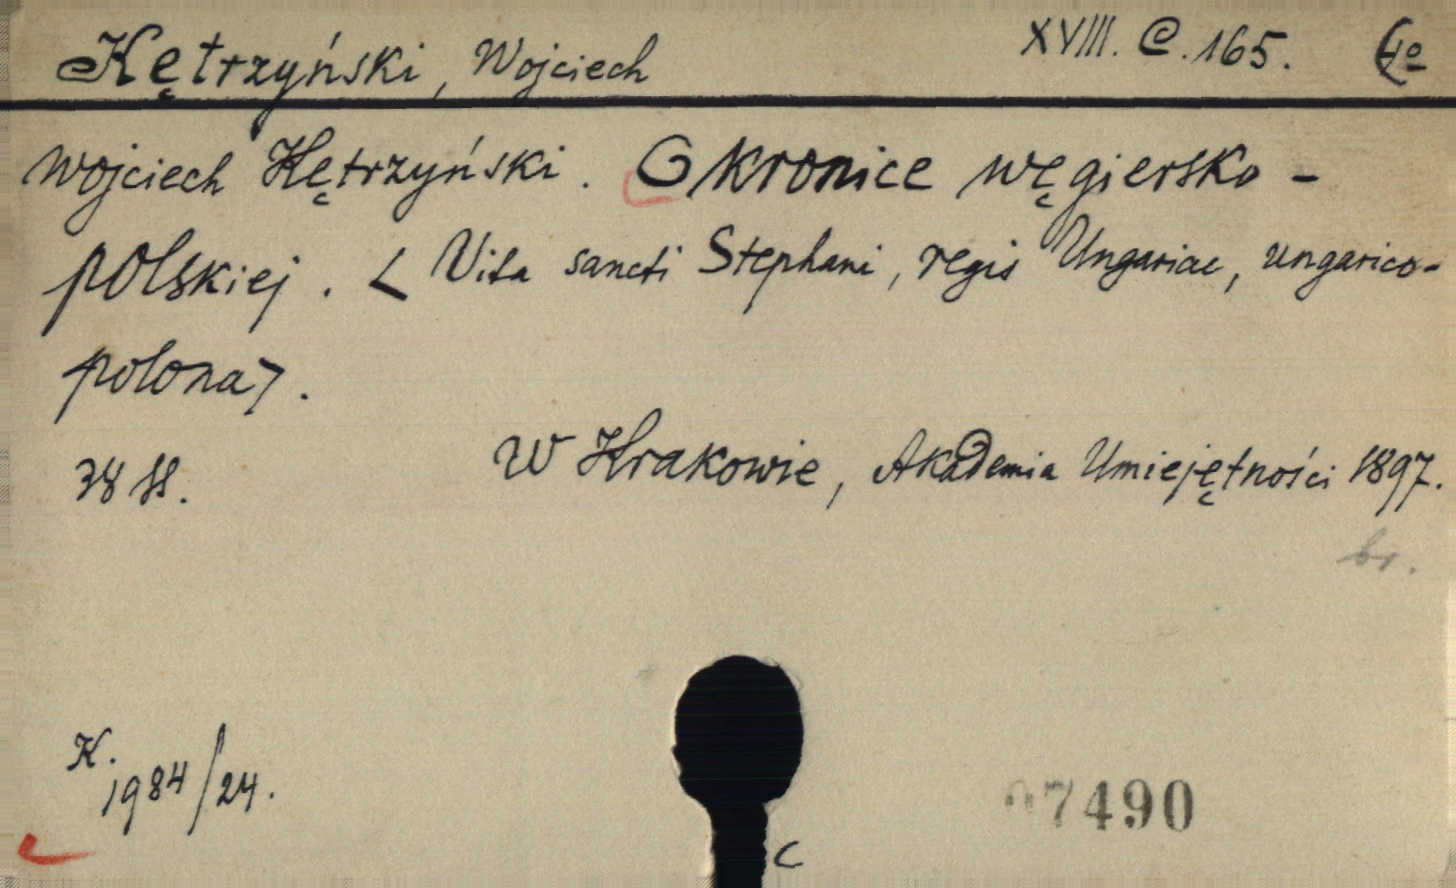 Kętrzyński, Wojciech XVIII. C. 165. 4o
Wojciech Kętrzyński. O kronice węgiersko-
polskiej. < Vita sancti Stephani, regis Ungariae, ungarico-
polona>.
W Krakowie, Akademia Umiejętności 1897.
br.
K.
1984/24.
7490
C